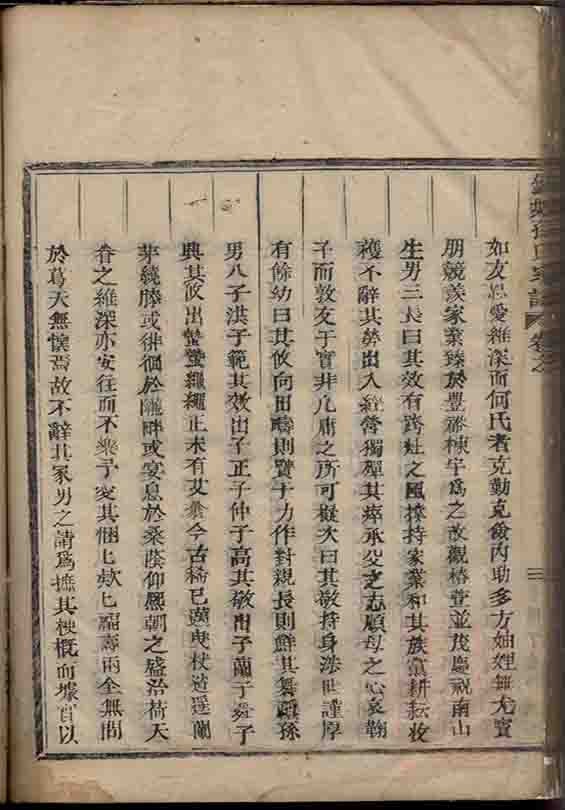 氏家譜 卷之
如友恩愛維深而何氏者克勤克儉內助多方妯娌無尤賓
朋競羡家業臻於豐裕棟宇為之改觀椿萱並茂慶祝南山
生男三長曰其效有跨灶之風撐持家業和其族黨耕耘收
穫不辭其勞出入經營獨殫其瘁承父之志順母之心哀鞠
子而敦友于實非凡庸之所可擬次曰其敬持身涉世謹厚
有餘幼曰其攸向田疇則覽于力作對親長則鮮其舞孫
男八子洪子範其效出子正子仲子高其敬出子蘭子 子
興其攸出蟄蟄繩繩正未有艾 今古稀已邁曳杖逍遙蘭
芽繞膝或徘徊於隴畔或宴息於桑蔭仰熙朝之盛治荷天
眷之維深亦安往而不樂予 其悃匕款匕福壽兩全無間
於葛天無懷焉故不辭其冢男之請為撫其梗概而據實以